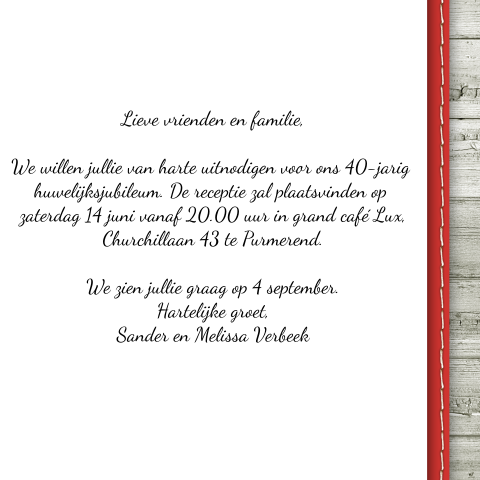 Lieve vrienden en familie,
We willen jullie van harte uitnodigen voor ons 40-jarig
huwelijksjubileum. De receptie zal plaatsvinden op
zaterdag 14 juni vanaf 20.00 uur in grand café Lux,
Churchillaan 43 te Purmerend.
We zien jullie graag op 4 september.
Hartelijke groet,
Sander en Melissa Verbeek